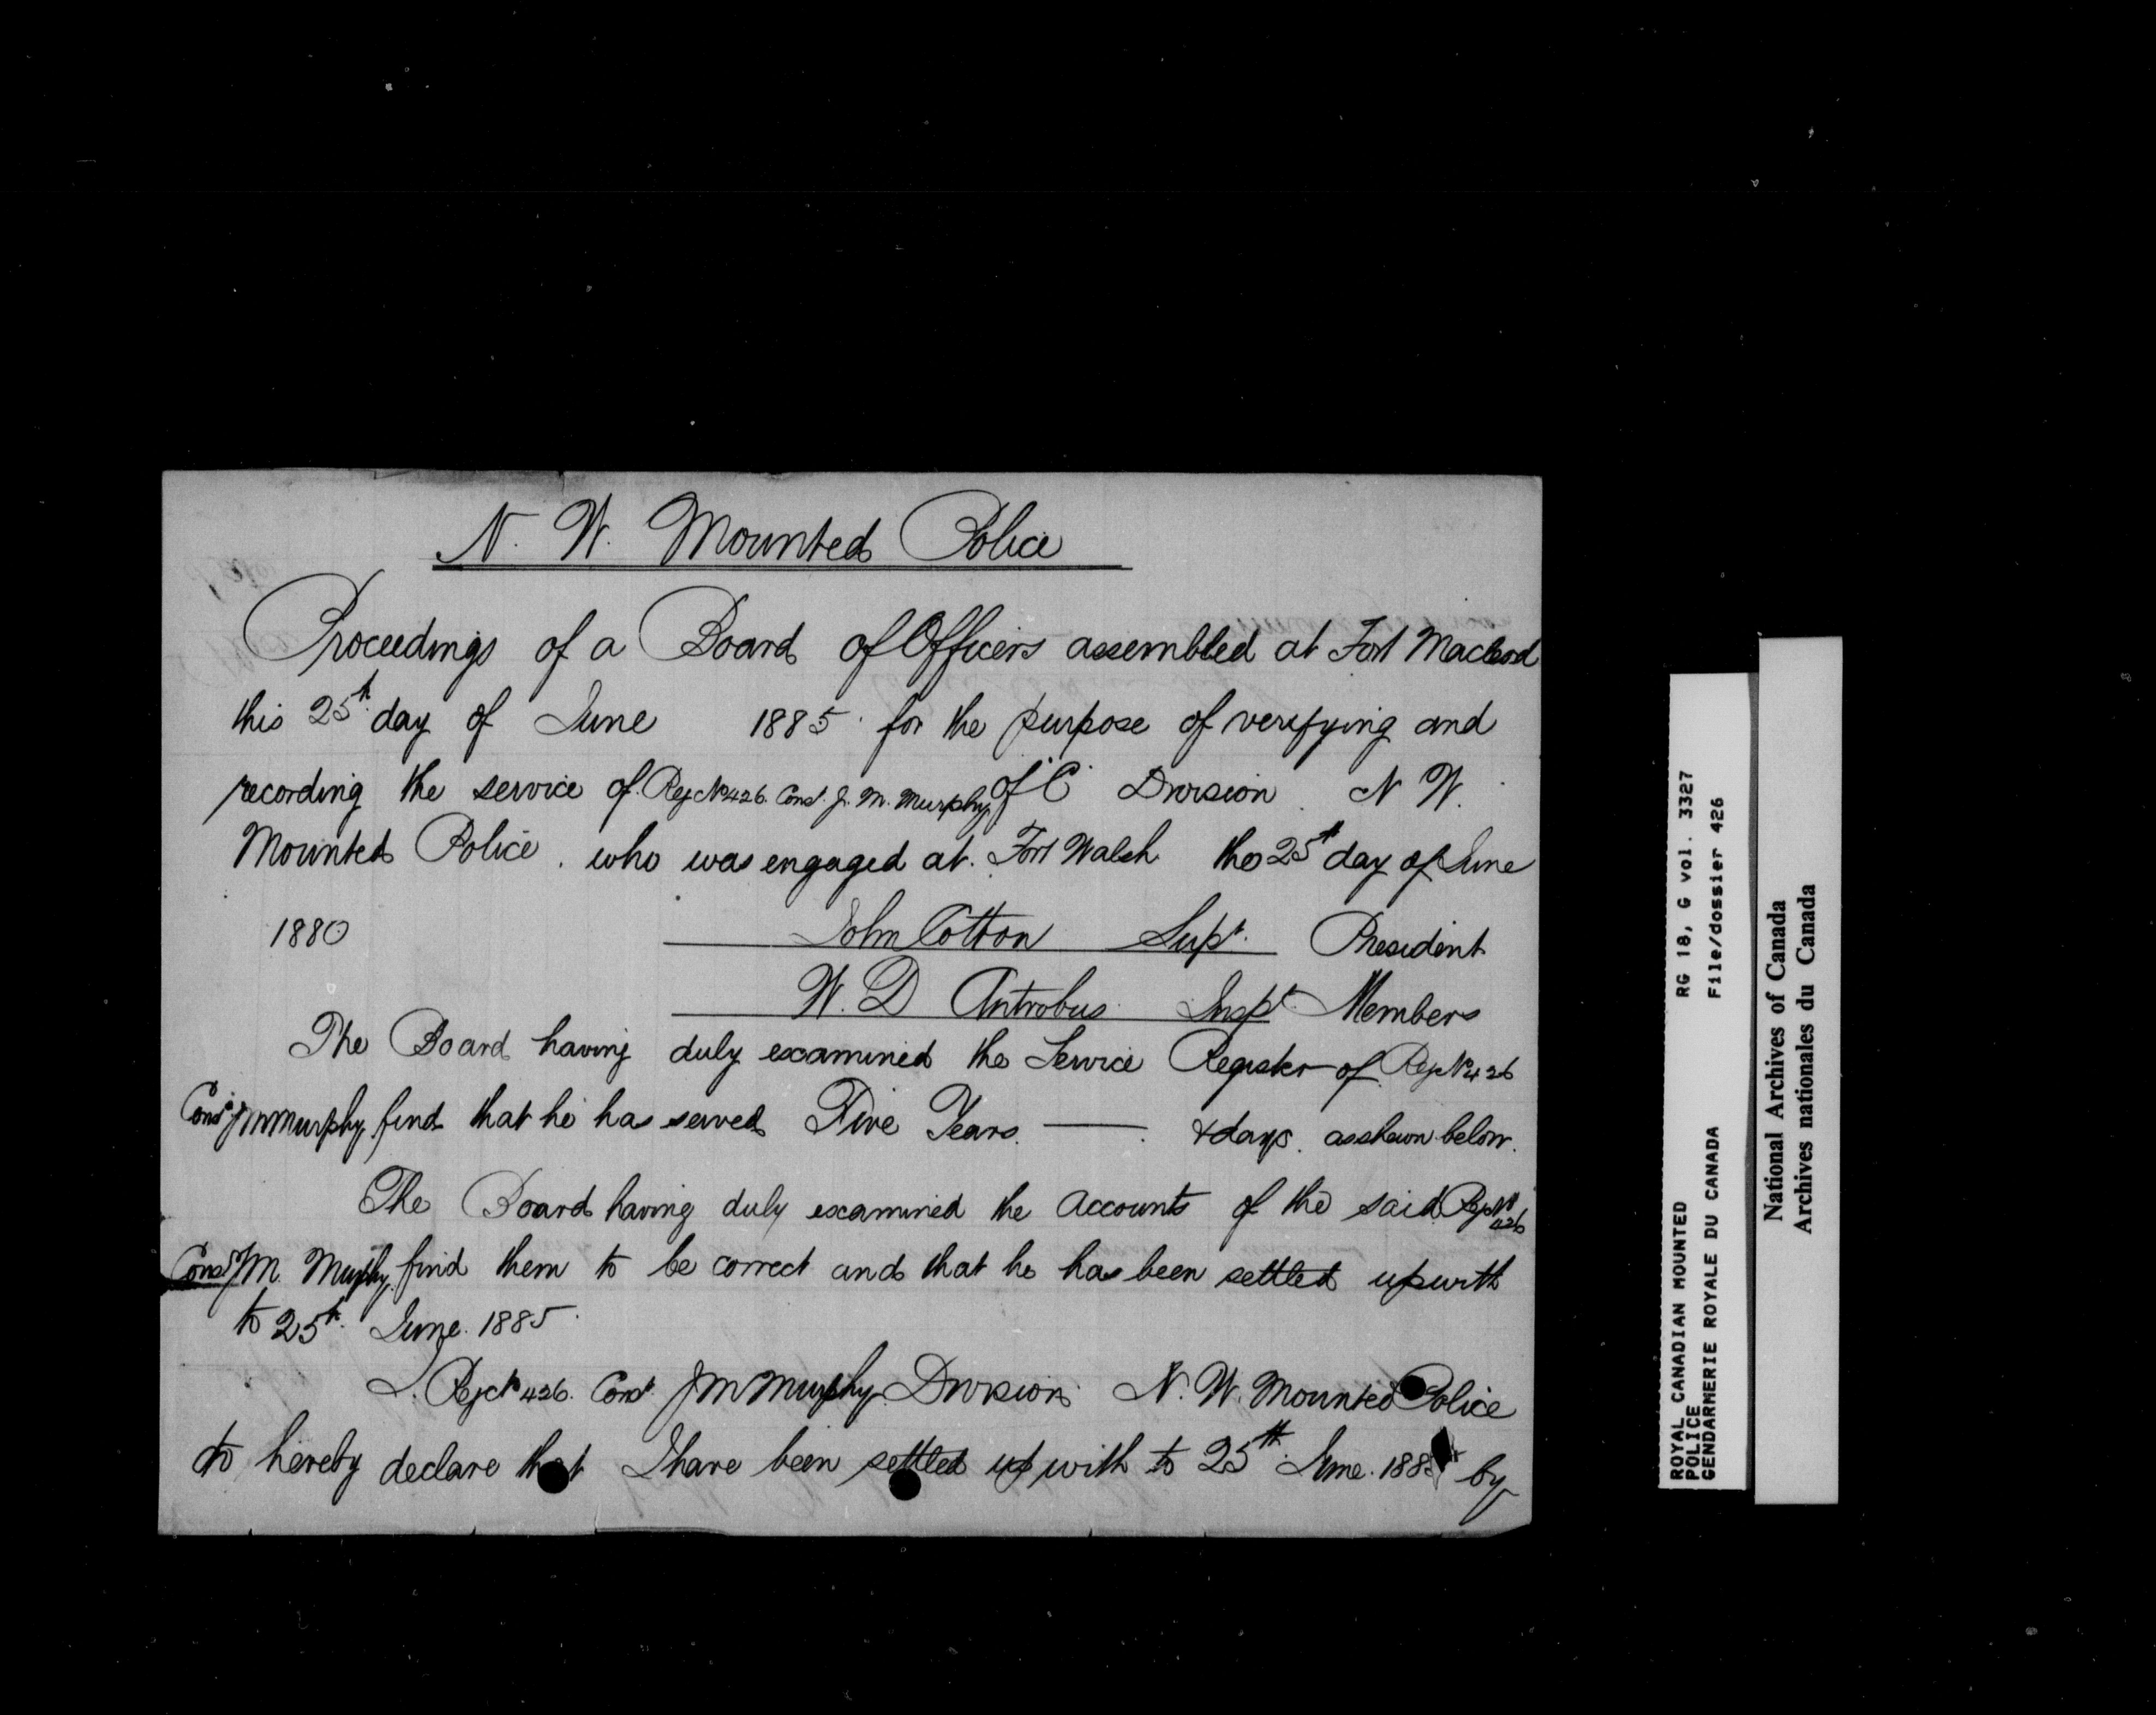 N. W. Mounted Police
Proceedings of a Board of Officers assembled at Fort Macleod
this 25th day of June 1885 for the purpose of verifying and
recording the service of Reg No 426. Const. J. M. Murphy of "C" Division. N W.
Mounted Police. who was engaged at. Fort Walsh the 25th day of June
1880 John Cotton Supt. President
W. D Antrobus Inspt. Members
The Board having duly examined the Service Register of Reg No 426
Const J M Murphy find that he has served Five Years. — days. as shewn below.
The Board having duly examined the accounts of the said Reg No 426
Const J M. Murphy find them to be correct and that he has been settled up with
to 25th. June. 1885.
I. Reg No 426. Const. J M Murphy Division N. W. Mounted Police
do hereby declare that I have been settled up with to 25th. June. 188 by
ROYAL CANADIAN MOUNTED RG 18, G vol. 3327
POLICE File/dossier 426
GENDARMERIE ROYALE DU CANADA
National Archives of Canada
Archives nationales du Canada